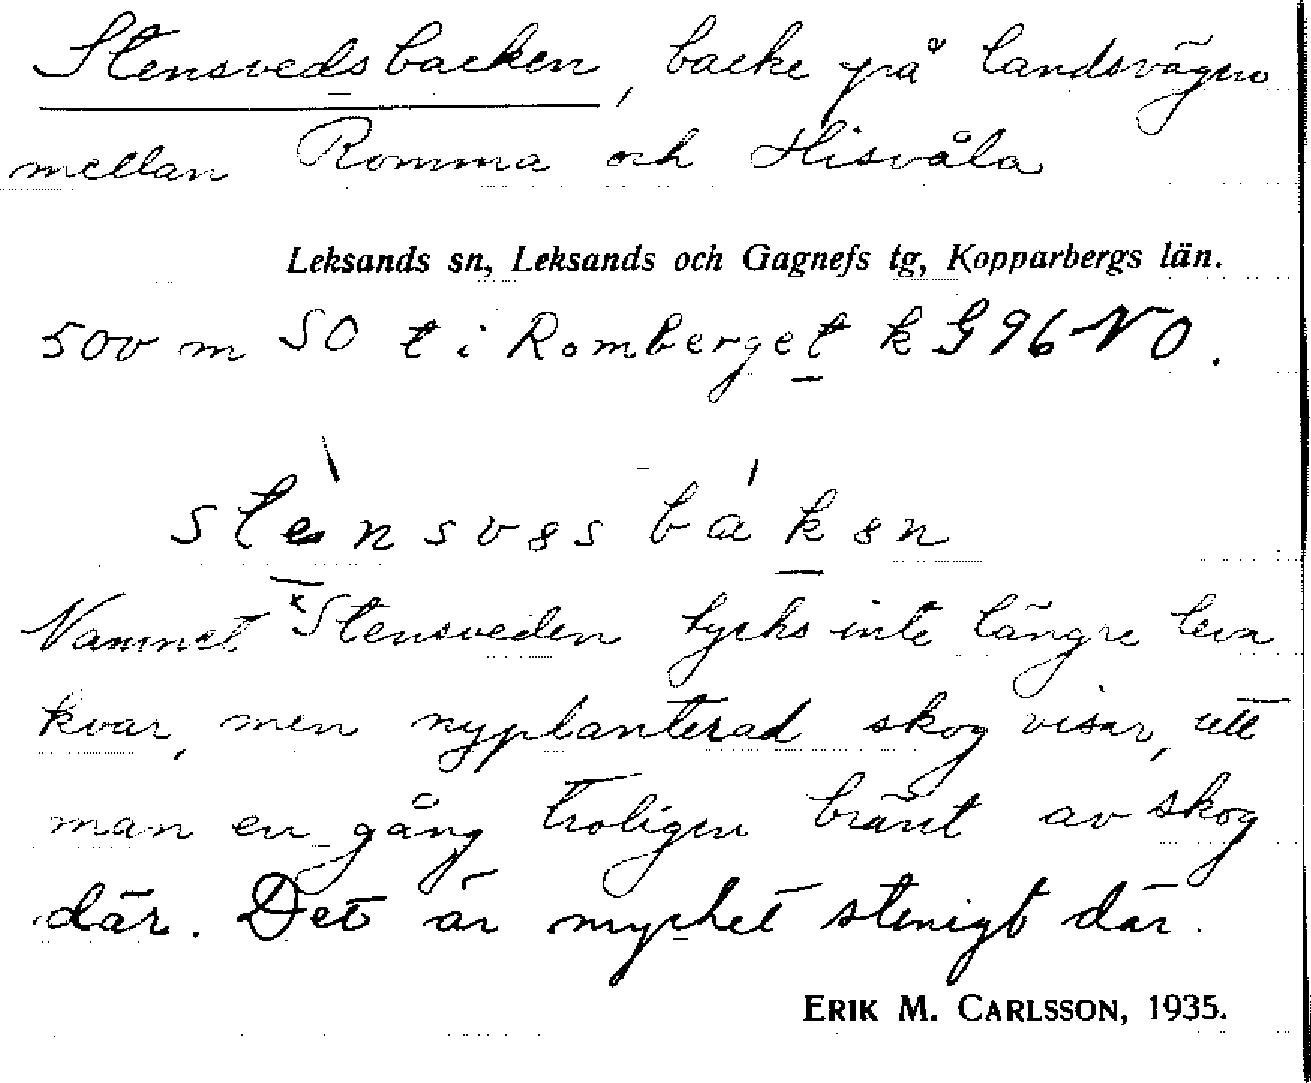 Stensvedsbacken, backe på landsvägen
mellan Romma och Hisvåla
Leksands sn, Leksands och Gagnefs tg, Kopparbergs län.
500 m SO t i Romberget k G 96 NO.
stènsvəsbákən
Namnet *Stensveden tycks inte längre leva
kvar, men nyplanterad skog visar, att
man en gång troligen bränt av skog
där. Det är mycket stenigt där.
ERIK M. CARLSSON, 1935.